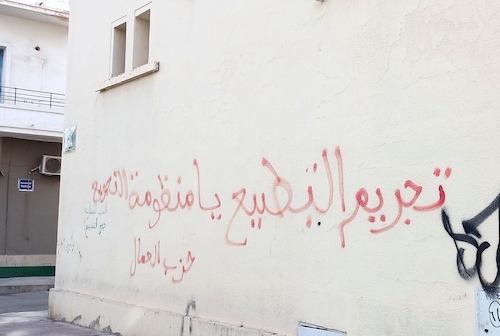 تجريم التطبيع يا منظومة التجويع
حزب العمال